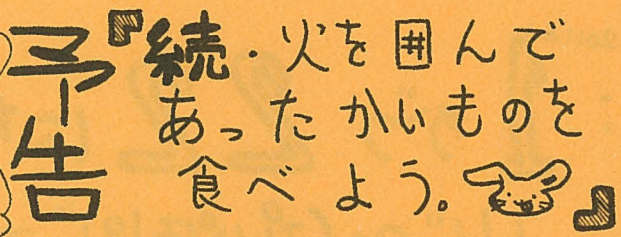 予告
『続・火を囲んで
あったかいものを
食べよう。』